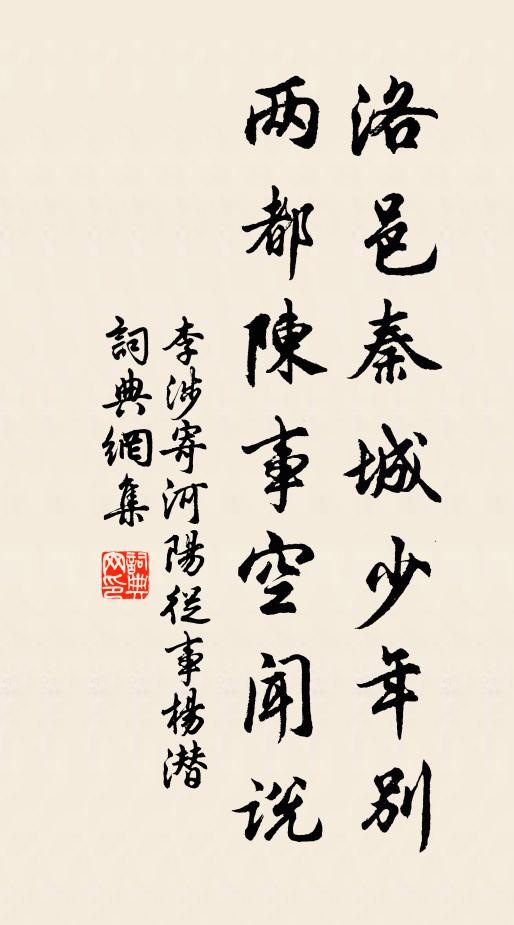 洛邑秦城少年別
两都陳事空聞說
李涉寄河陽從事楊潛
詞典網集
詞典网印